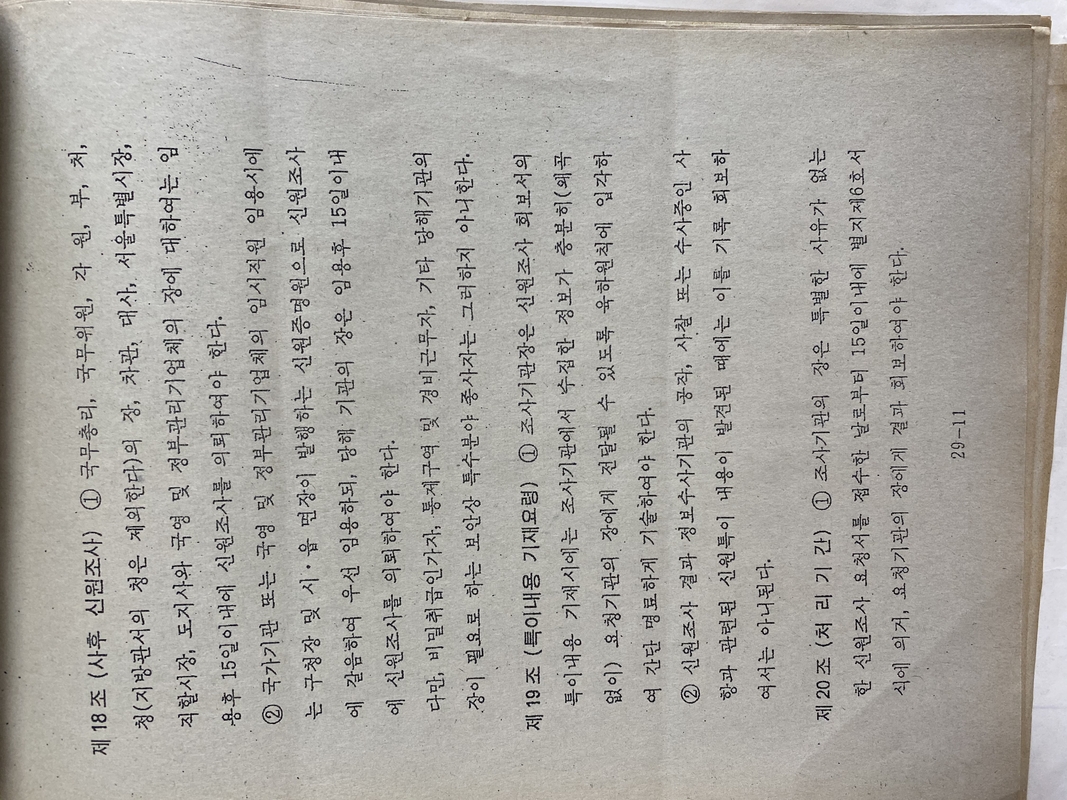 제 18 조 (사후 신원조사) ① 국무총리, 국무위원, 각 원, 부, 처,
청(지방관서의 청은 제외한다)의 장, 차관, 대사, 서울특별시장,
직할시장, 도지사와 국영 및 정부관리기업체의 장에 대하여는 임
용후 15일이내에 신원조사를 의뢰하여야 한다.
② 국가기관 또는 국영 및 정부관리기업체의 임시직원 임용시에
는 구청장 및 시·읍 면장이 발행하는 신원증명원으로 신원조사
에 갈음하여 우선 임용하되, 당해 기관의 장은 임용후 15일이내
에 신원조사를 의뢰하여야 한다.
다만, 비밀취급인가자, 통제구역 및 경비근무자, 기타 당해기관의
장이 필요로 하는 보안상 특수분야 종사자는 그러하지 아니한다.
제 19 조 (특이내용 기재요령) ① 조사기관장은 신원조사 회보서의
특이내용 기재시에는 조사기관에서 수집한 정보가 충분히(왜곡
없이) 요청기관의 장에게 전달될 수 있도록 육하원칙에 입각하
여 간단 명료하게 기술하여야 한다.
② 신원조사 결과 정보수사기관의 공작, 사찰 또는 수사중인 사
항과 관련된 신원특이 내용이 발견된 때에는 이를 기록 회보하
여서는 아니된다.
제 20 조 (처 리 기 간) ① 조사기관의 장은 특별한 사유가 없는
한 신원조사 요청서를 접수한 날로부터 15일이내에 별지제6호서
식에 의거, 요청기관의 장에게 결과 회보하여야 한다.
29-11